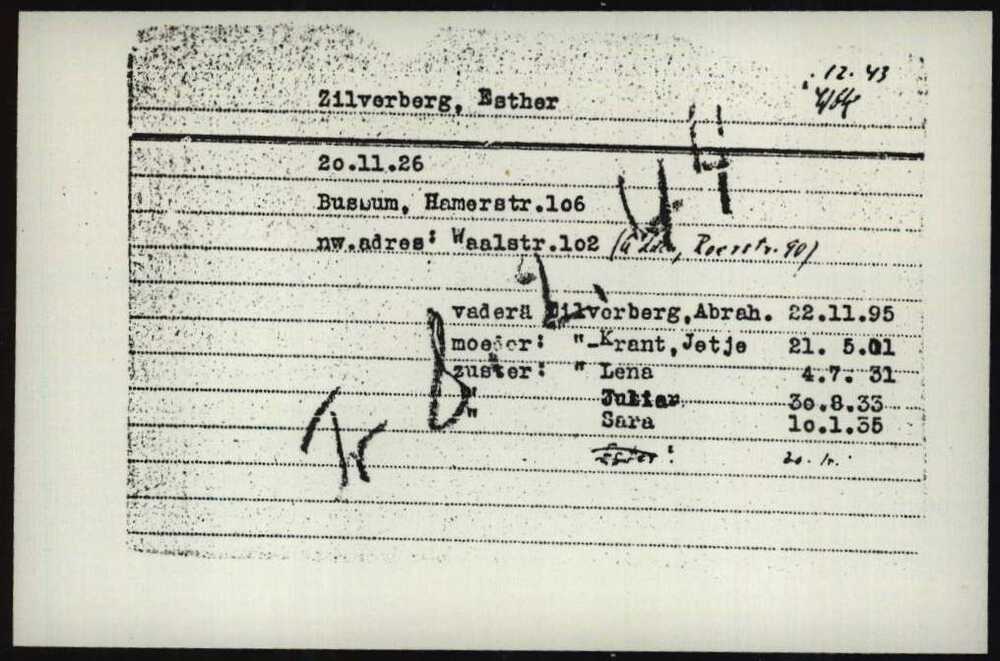 12. 43
Zilverberg, Esther
2o.11.26
Bussum, Hamerstr.1o6
nw.adres: Waalstr.1o2 Roerstr. 90)
vaderä Zilverberg,Abrah. 22.11.95
moeder: "-Krant,Jetje 21. 5.01
zuster: " Lena 4.7. 31
" 3o.8.33
" Sara 1o.1.35
Tr B